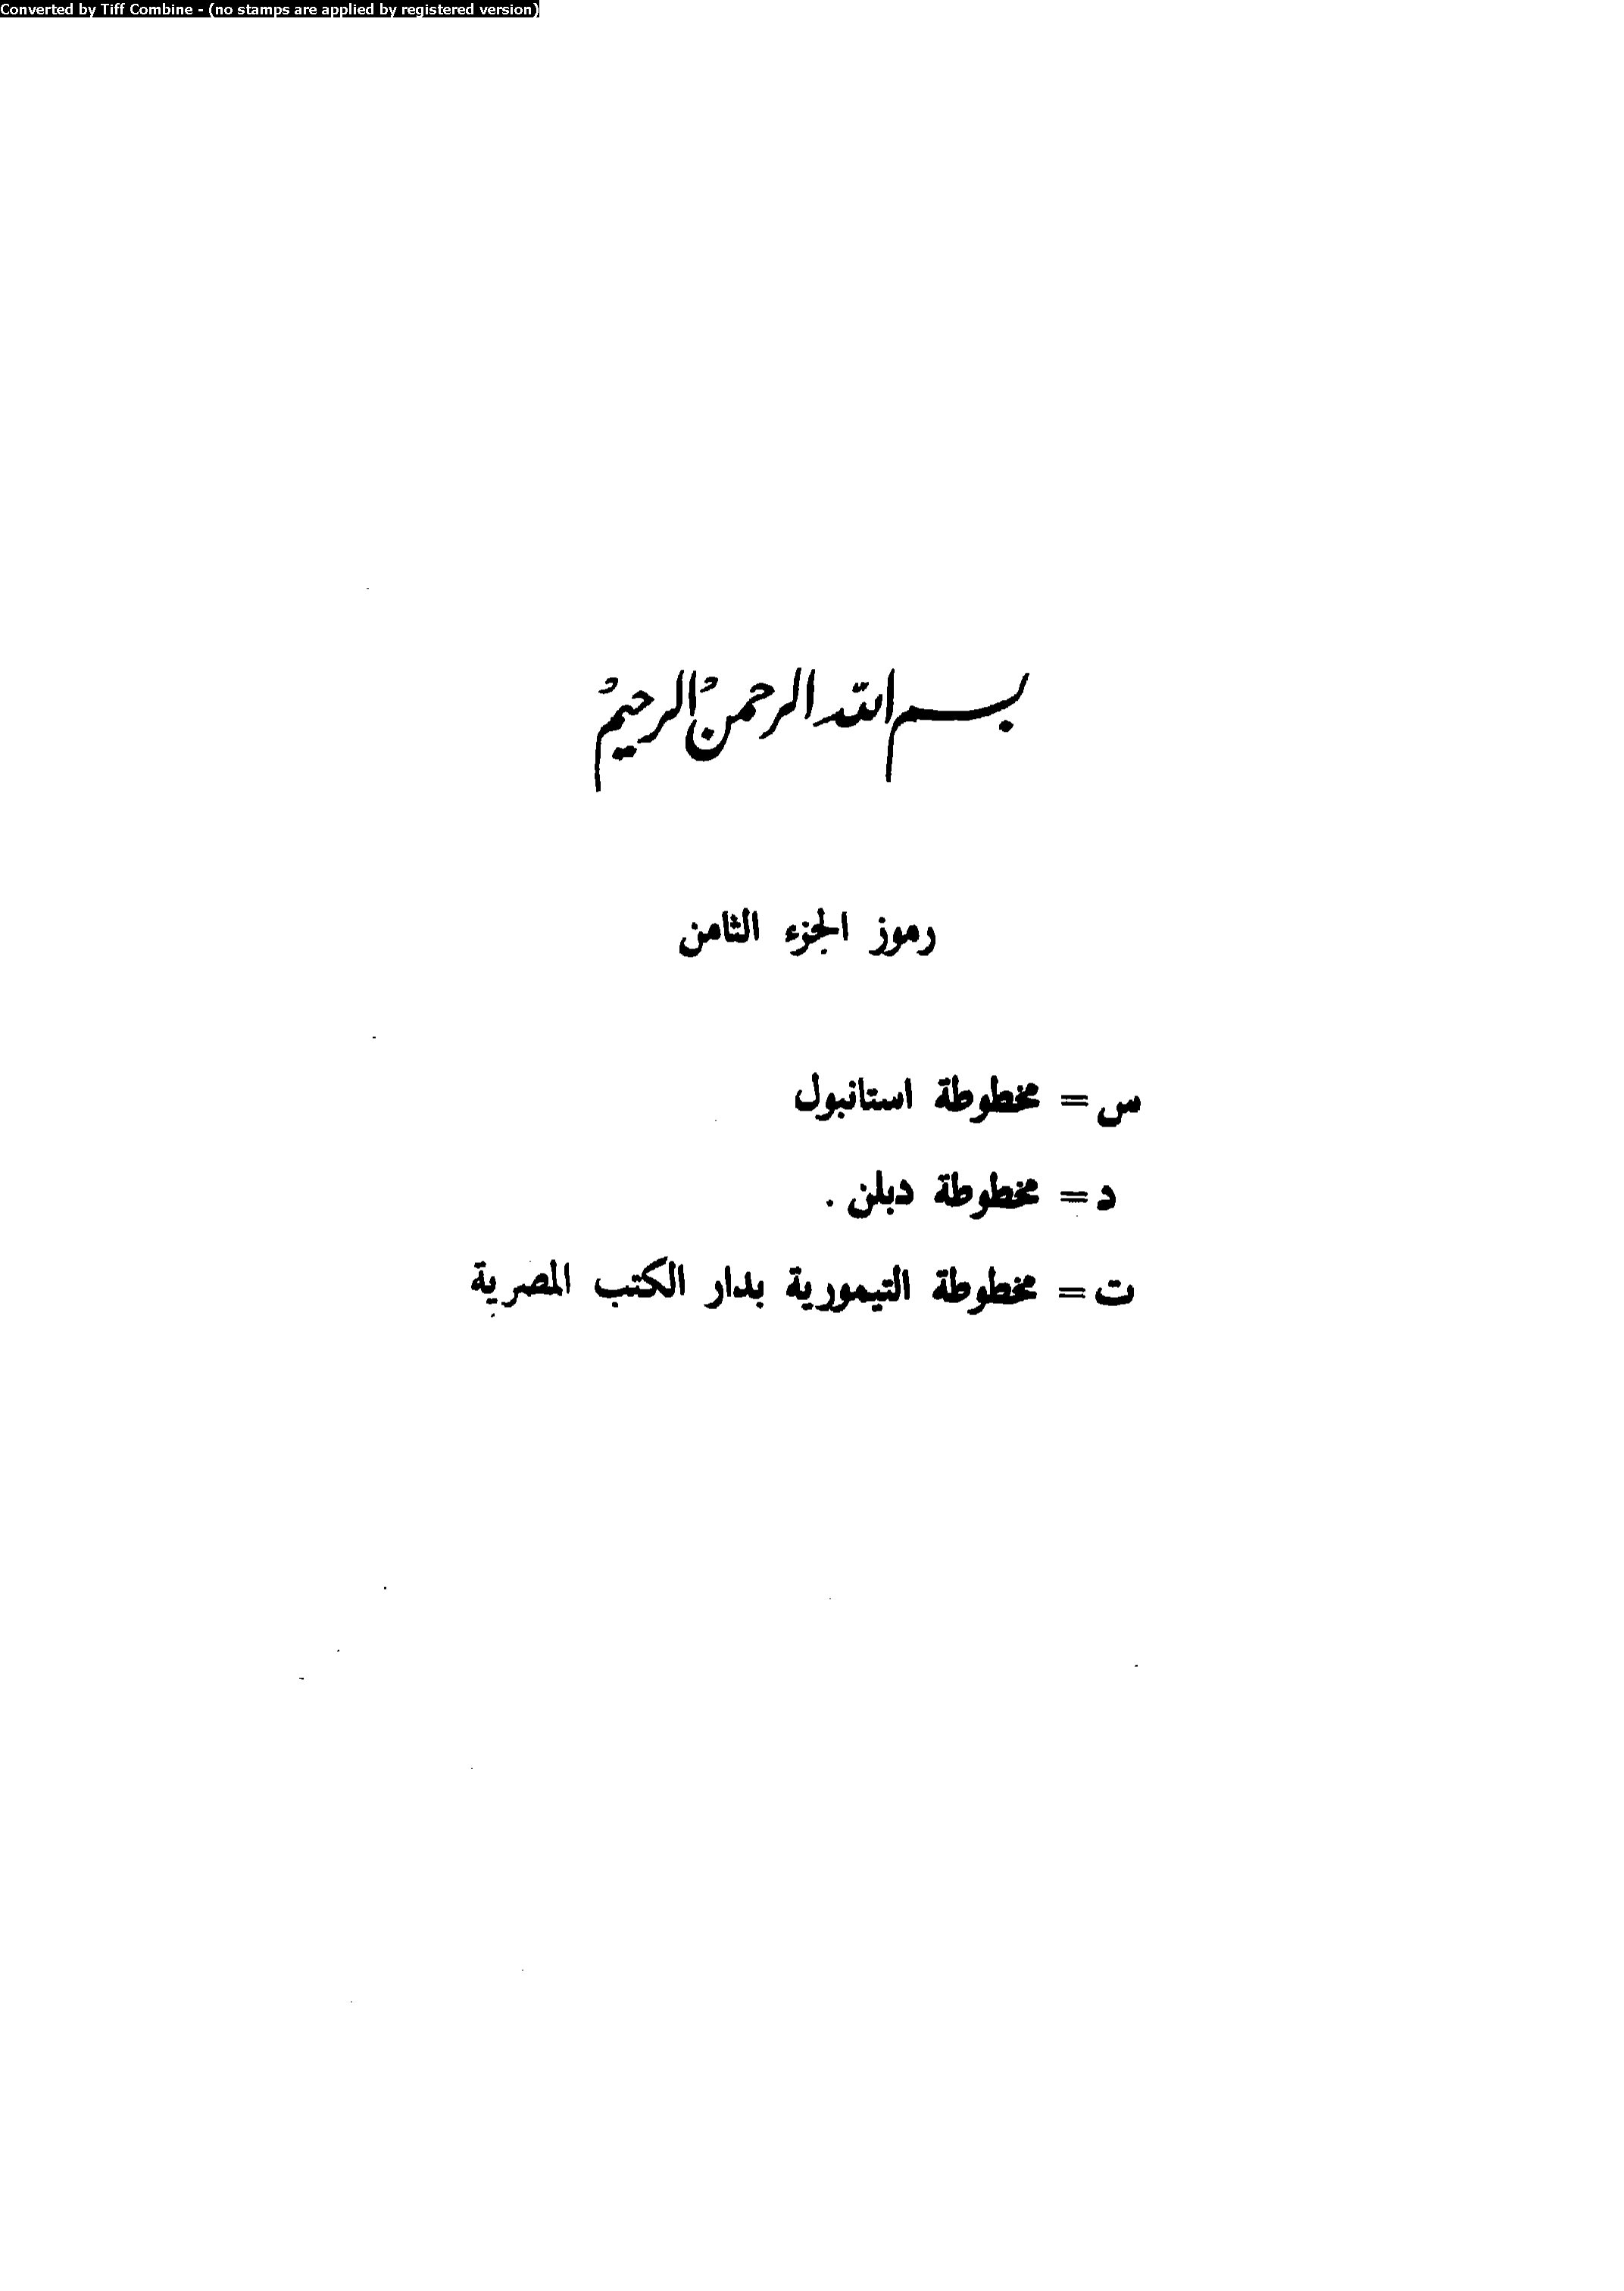 Converted by Tiff Combine - (no stamps are applied by registered version)
بسم الله الرحمن الرحيم
رموز الجزء الثامن
س = مخطوطة استانبول
د = مخطوطة دبلن .
ت = مخطوطة التيمورية بدار الكتب المصرية